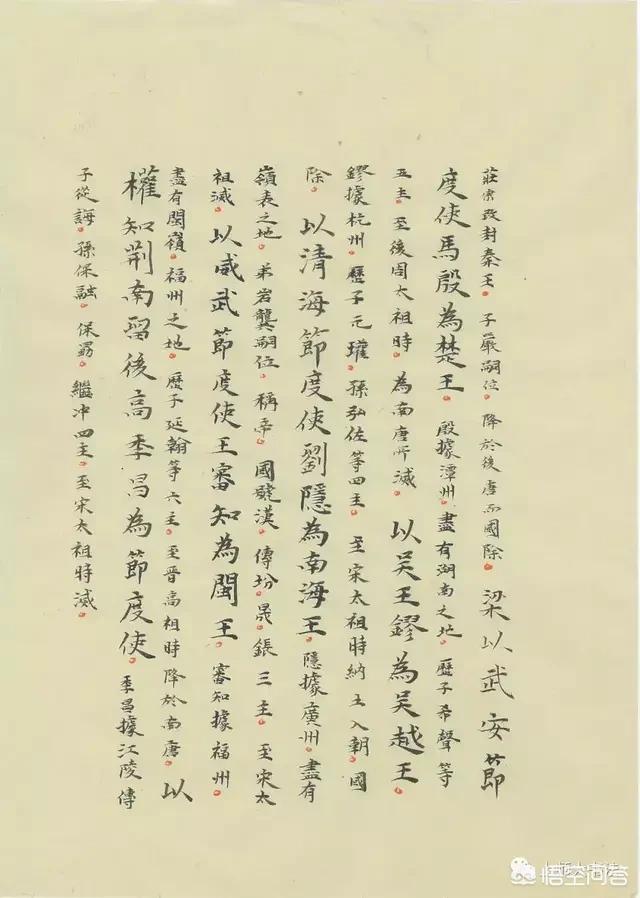 莊宗改封秦王。子嚴嗣位。降於後唐而國除。梁以武安節
度使馬殷為楚王。殷據潭州。盡有湖南之地。歷子希聲等
五主。至後周太祖時。為南唐所滅。以吳王鏐為吳越王。
鏐據杭州。歷子元瓘。孫弘佐等四主。至宋太祖時納土入朝。國
除。以清海節度使劉隱為南海王。隱據廣州。盡有
嶺表之地。弟岩龔嗣位。稱帝。國號漢。傳玢。晟。鋹三主。至宋太
祖滅。以威武節度使王審知為閩王。審知據福州。
盡有閩嶺。福州之地。歷子延翰等六主。至晉高祖時降於南唐。以
權知荆南留後高季昌為節度使。季昌據江陵傳
子從誨。孫保融。保勗。繼冲四主。至宋太祖時滅。
悟空问答